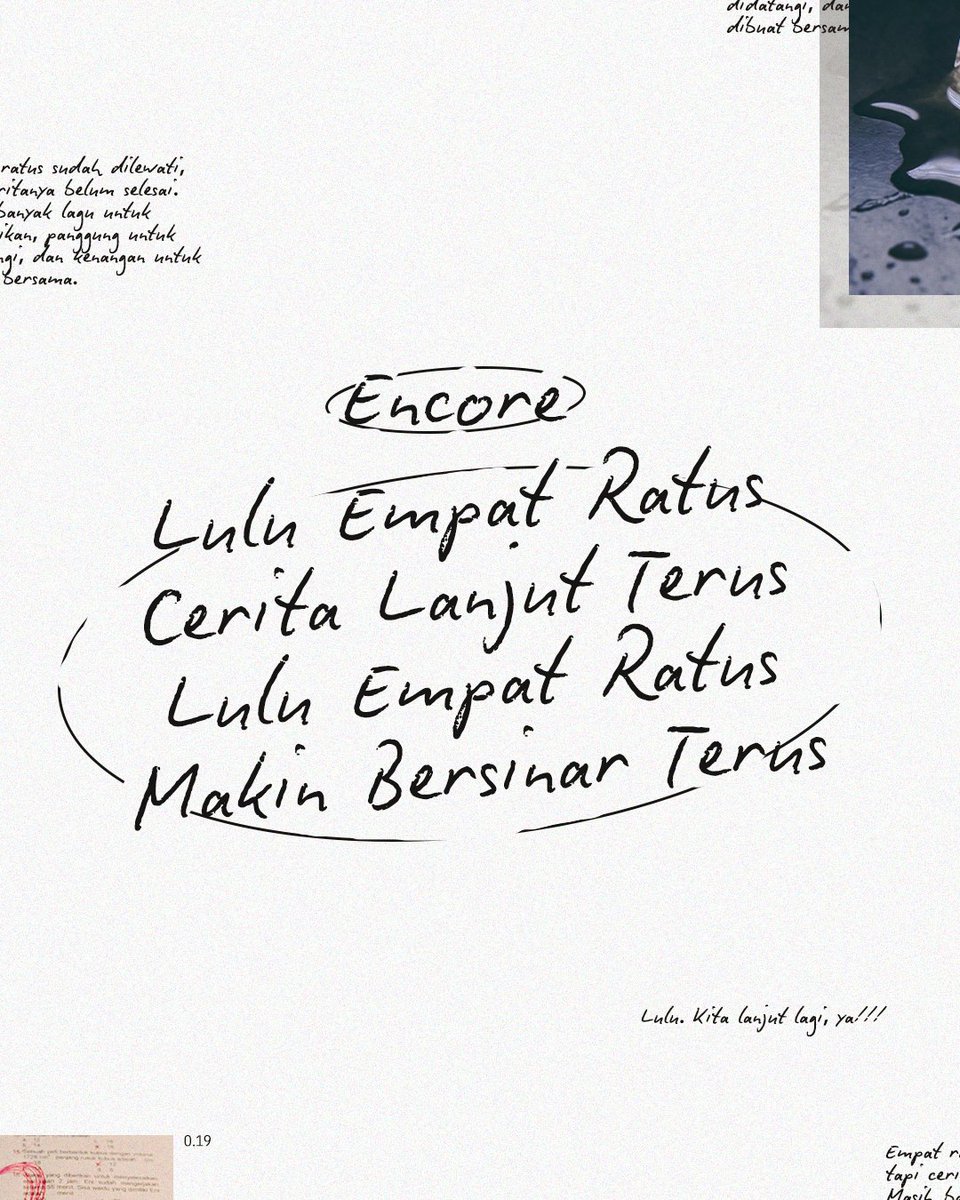 didatangi, dan
dibuat bersam
ratus sudah dilewati,
ritanya belum selesai.
banyak lagu untuk
ikan, panggung untuk
ngi, dan kenangan untuk
bersama.
Encore
Lulu Empat Ratus
Cerita Lanjut Terus
Lulu Empat Ratus
Makin Bersinar Terus
Lulu. Kita lanjut lagi, ya!!!
0.19
Empat r
tapi ceri
Masih b